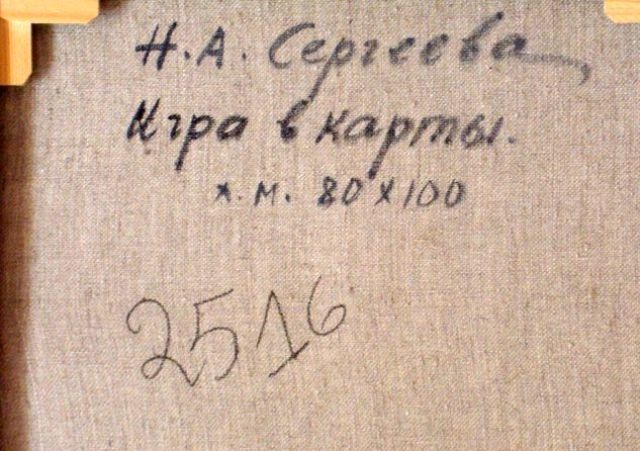 Н.А. Сергеева
Игра в карты.
х.м. 80х100
2516